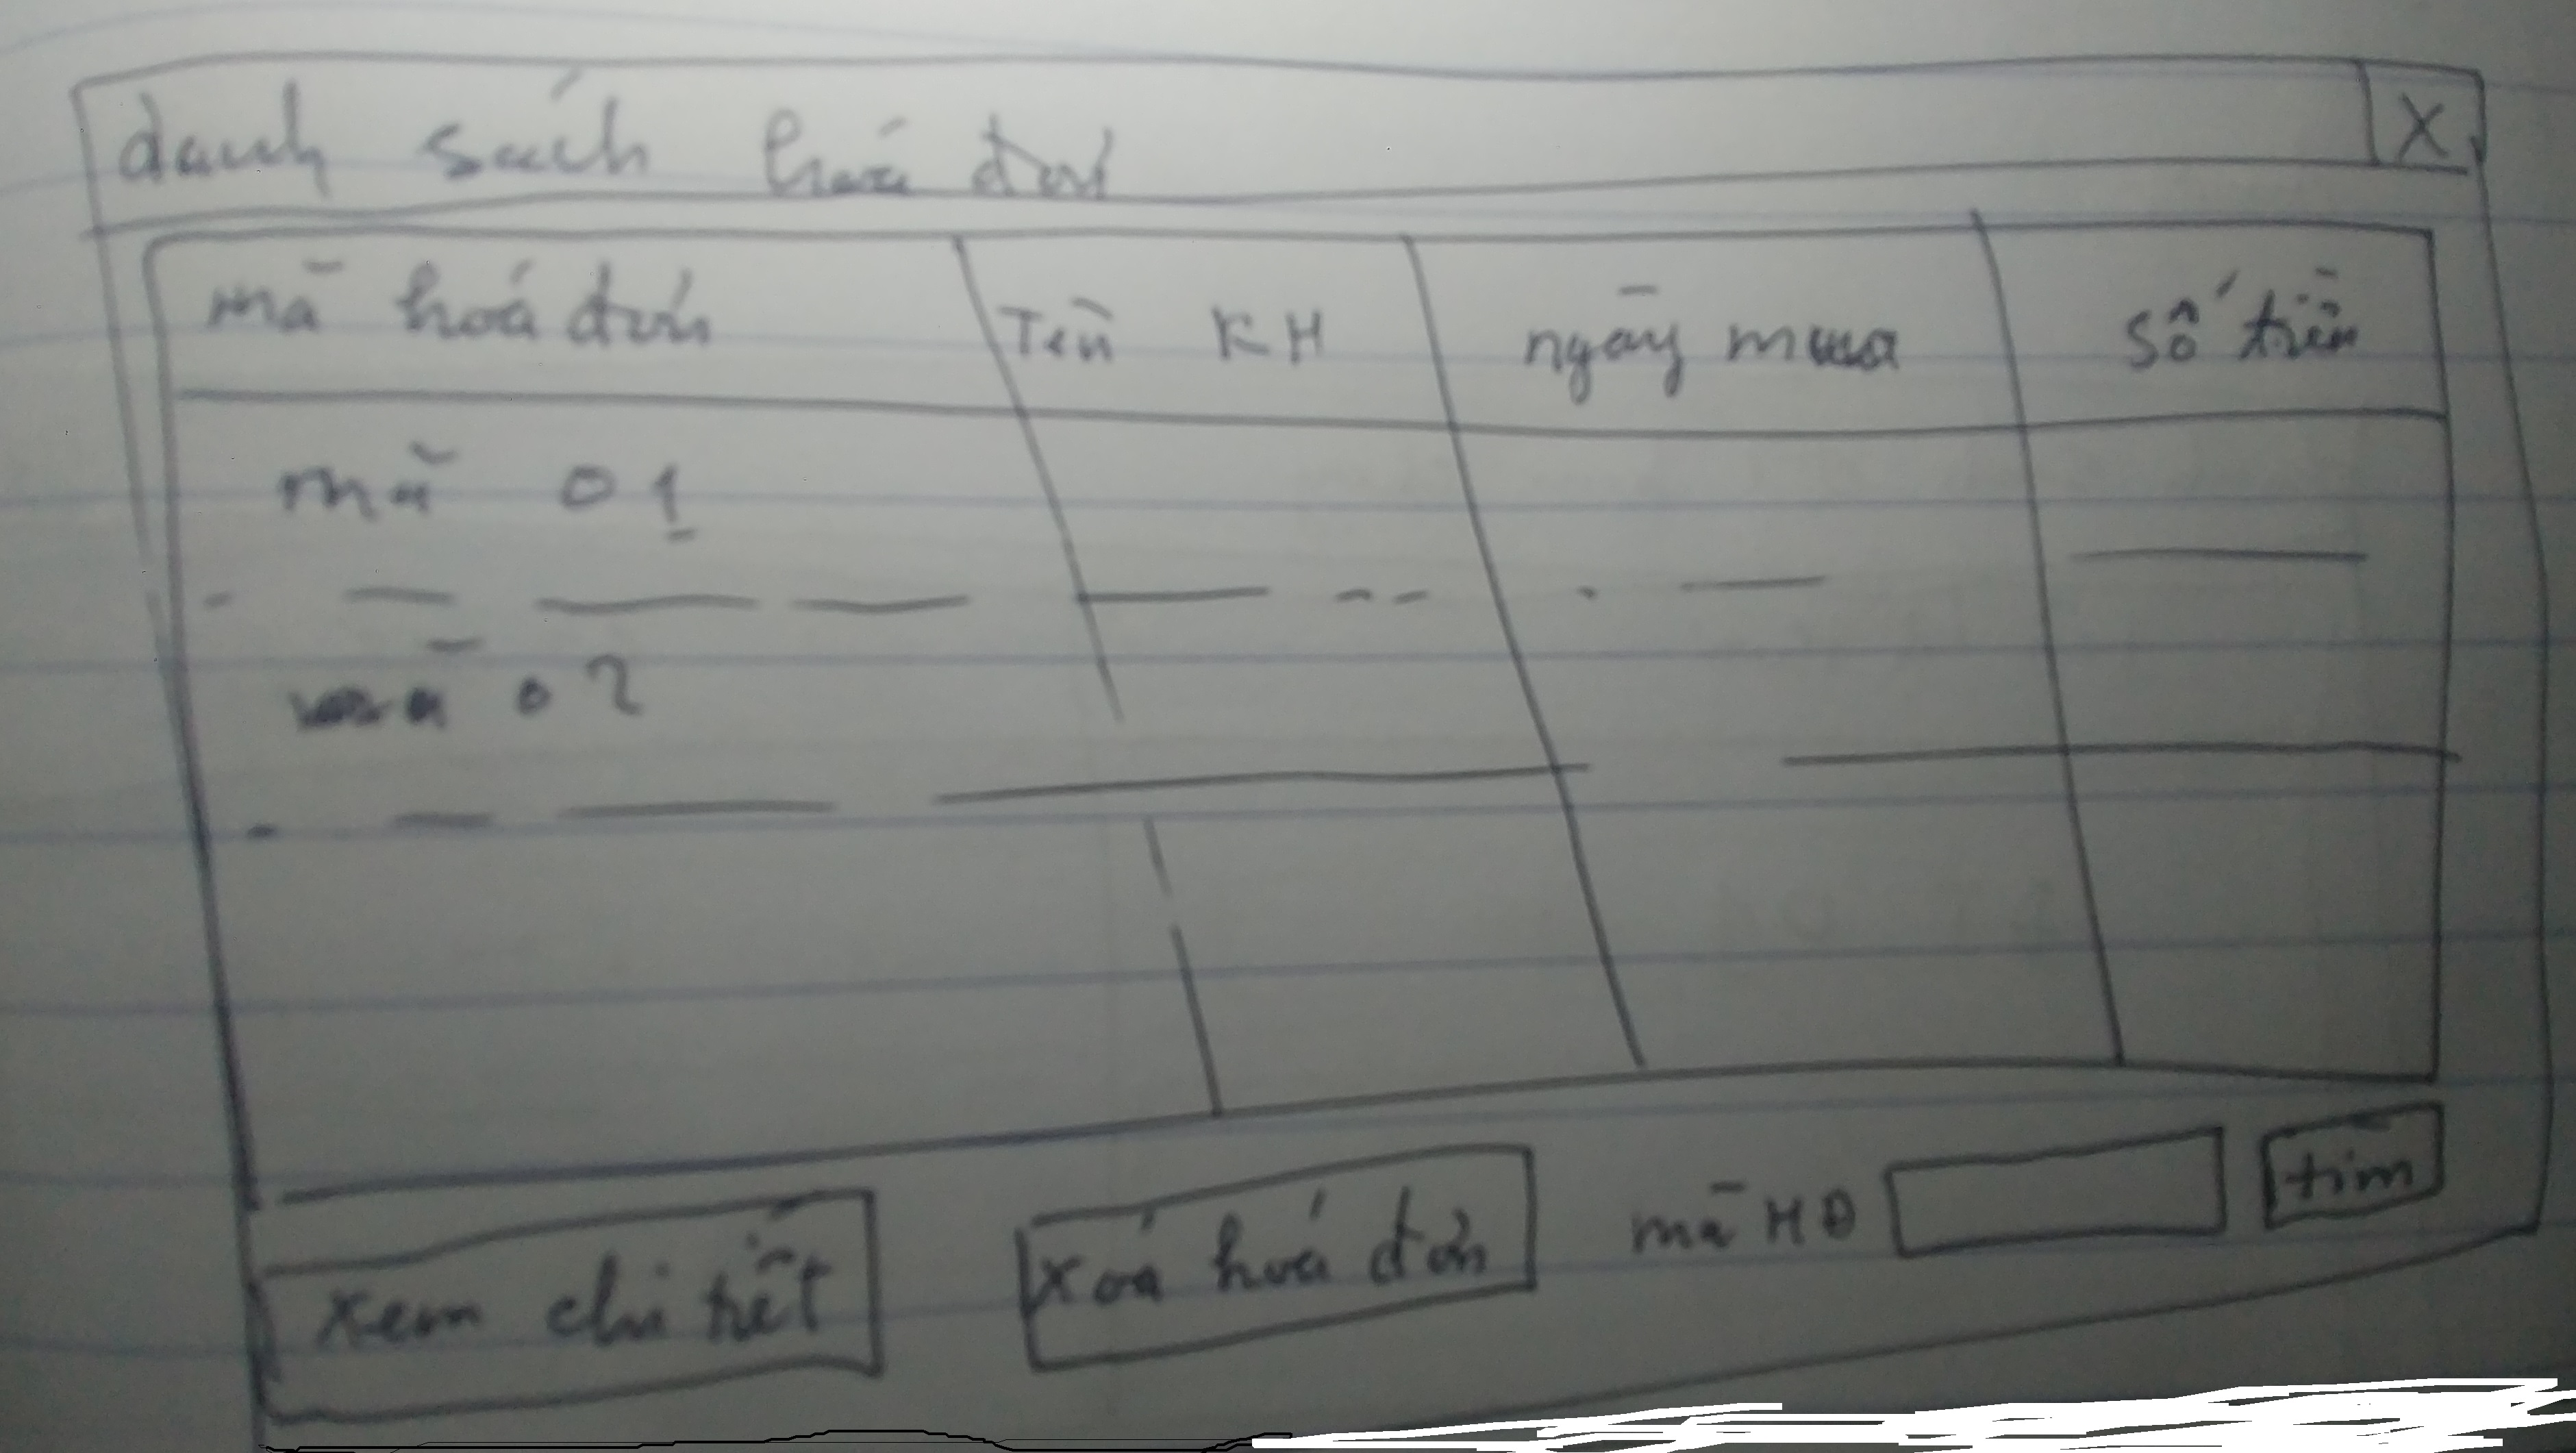 danh sách hoá đơn X
mã hoá đơn Tên KH ngày mua số tiền
mã 01
mã 02
xem chi tiết xoá hoá đơn mã HĐ tìm